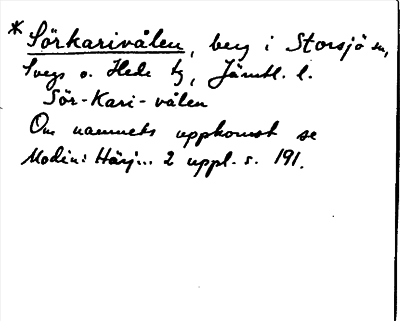 * Sörkarivålen, berg i Storsjö sn,
Svegs o. Hede tg, Jämtl. l.
Sör-Kari-vålen
Om namnets uppkomst se
Modin: Härj... 2 uppl. s. 191.